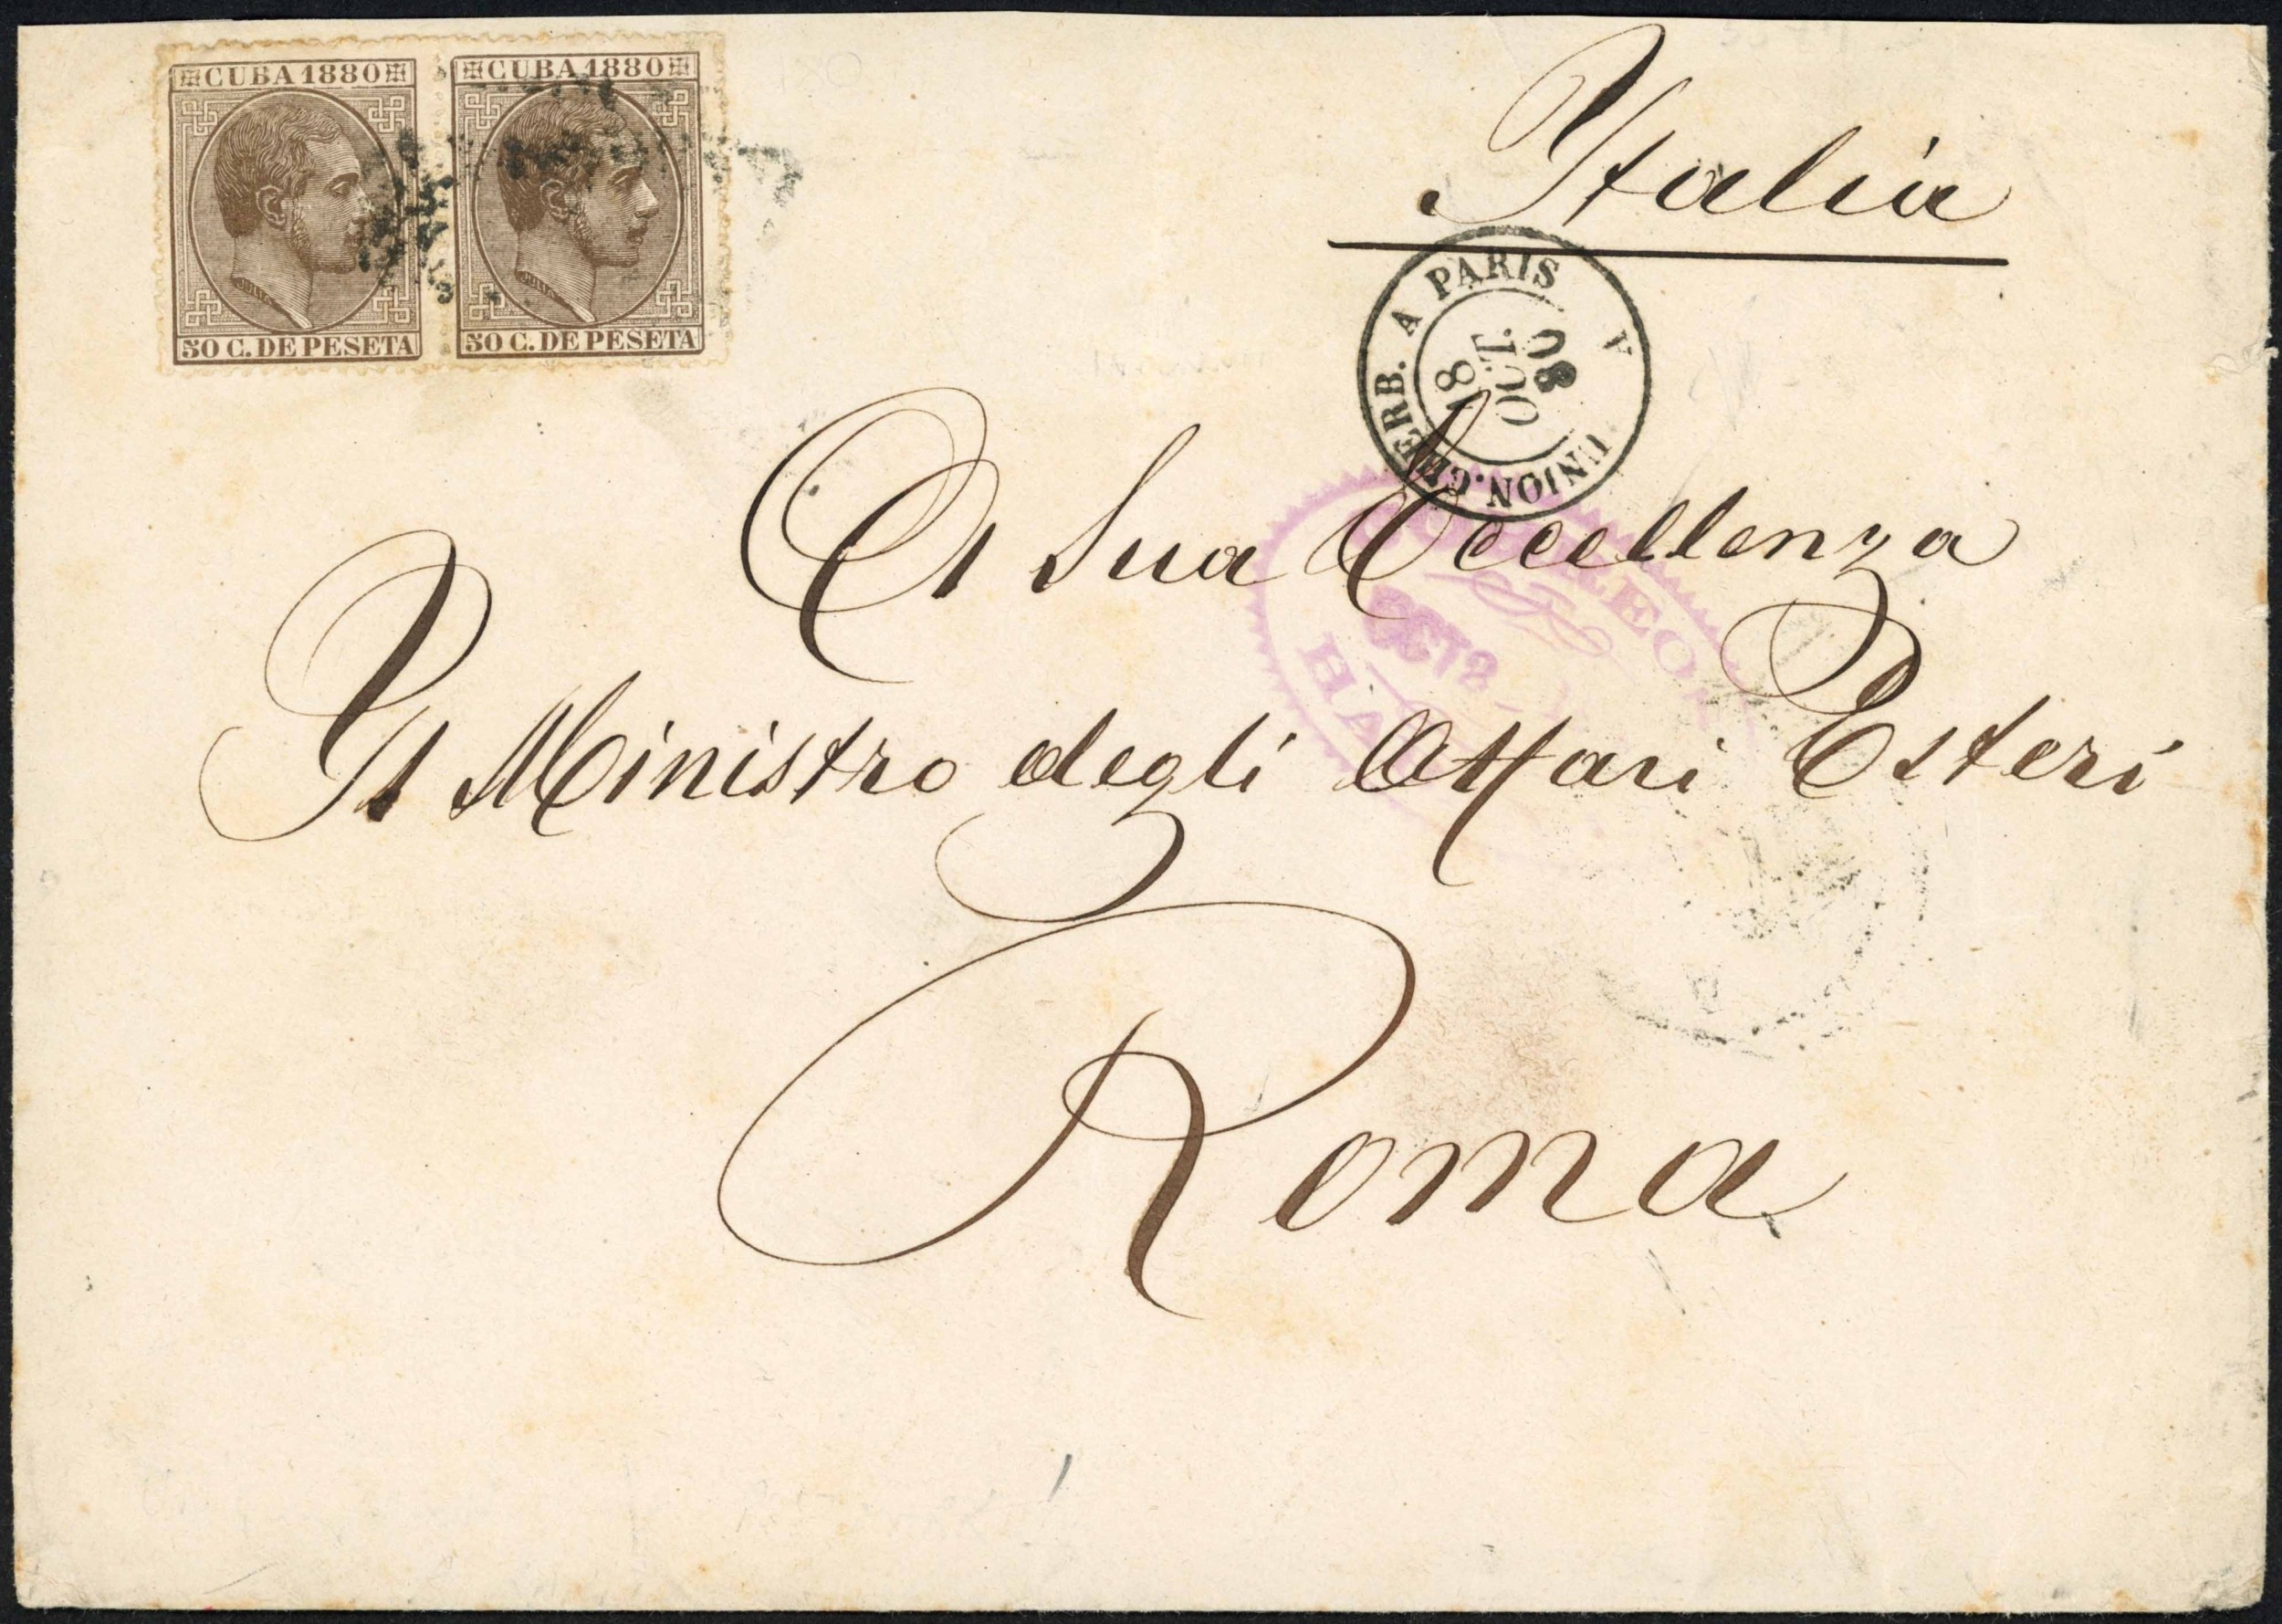 CUBA 1880
CUBA 1880
50 C. DE PESETA
50 C. DE PESETA
Italia
UNION. CHERB. A PARIS A
18
OCT.
80
A Sua Eccellenza
Il Ministro degli Affari Esteri
Roma